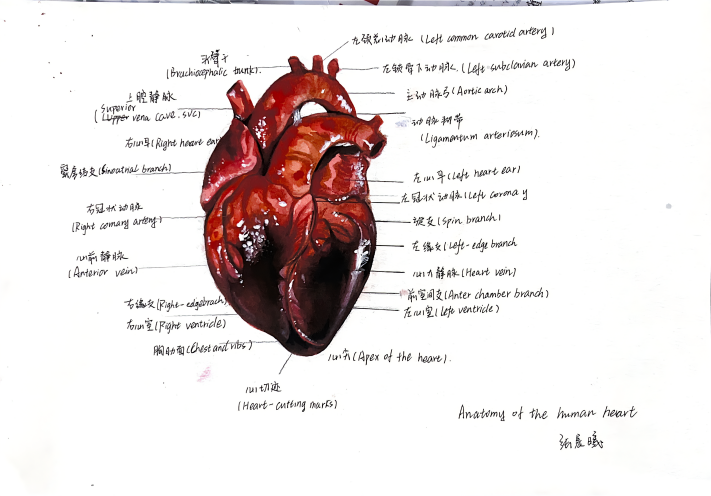 左颈总动脉 (Left common carotid artery)
头臂干
(Brachiocephalic trunk).
左锁骨下动脉 (Left subclavian artery)
上腔静脉
(Superior
vena cava. SVC)
主动脉弓 (Aortic arch)
动脉韧带
(Ligamentum arteriosum).
右心耳 (Right heart ear)
窦房结支 (Sinoatrial branch)
左心耳 (Left heart ear)
左冠状动脉 (Left corona y
右冠状动脉
(Right comary artery)
旋支 (Spin branch)
左缘支 (Left-edge branch
心前静脉
(Anterior vein)
心大静脉 (Heart vein)
前室间支 (Anter chamber branch)
右缘支 (Right-edgebrach)
左心室 (Left ventricle)
右心室 (Right ventricle)
胸肋面 (Chest and ribs)
心尖 (Apex of the heart).
心切迹
(Heart-cutting marks)
Anatomy of the human heart